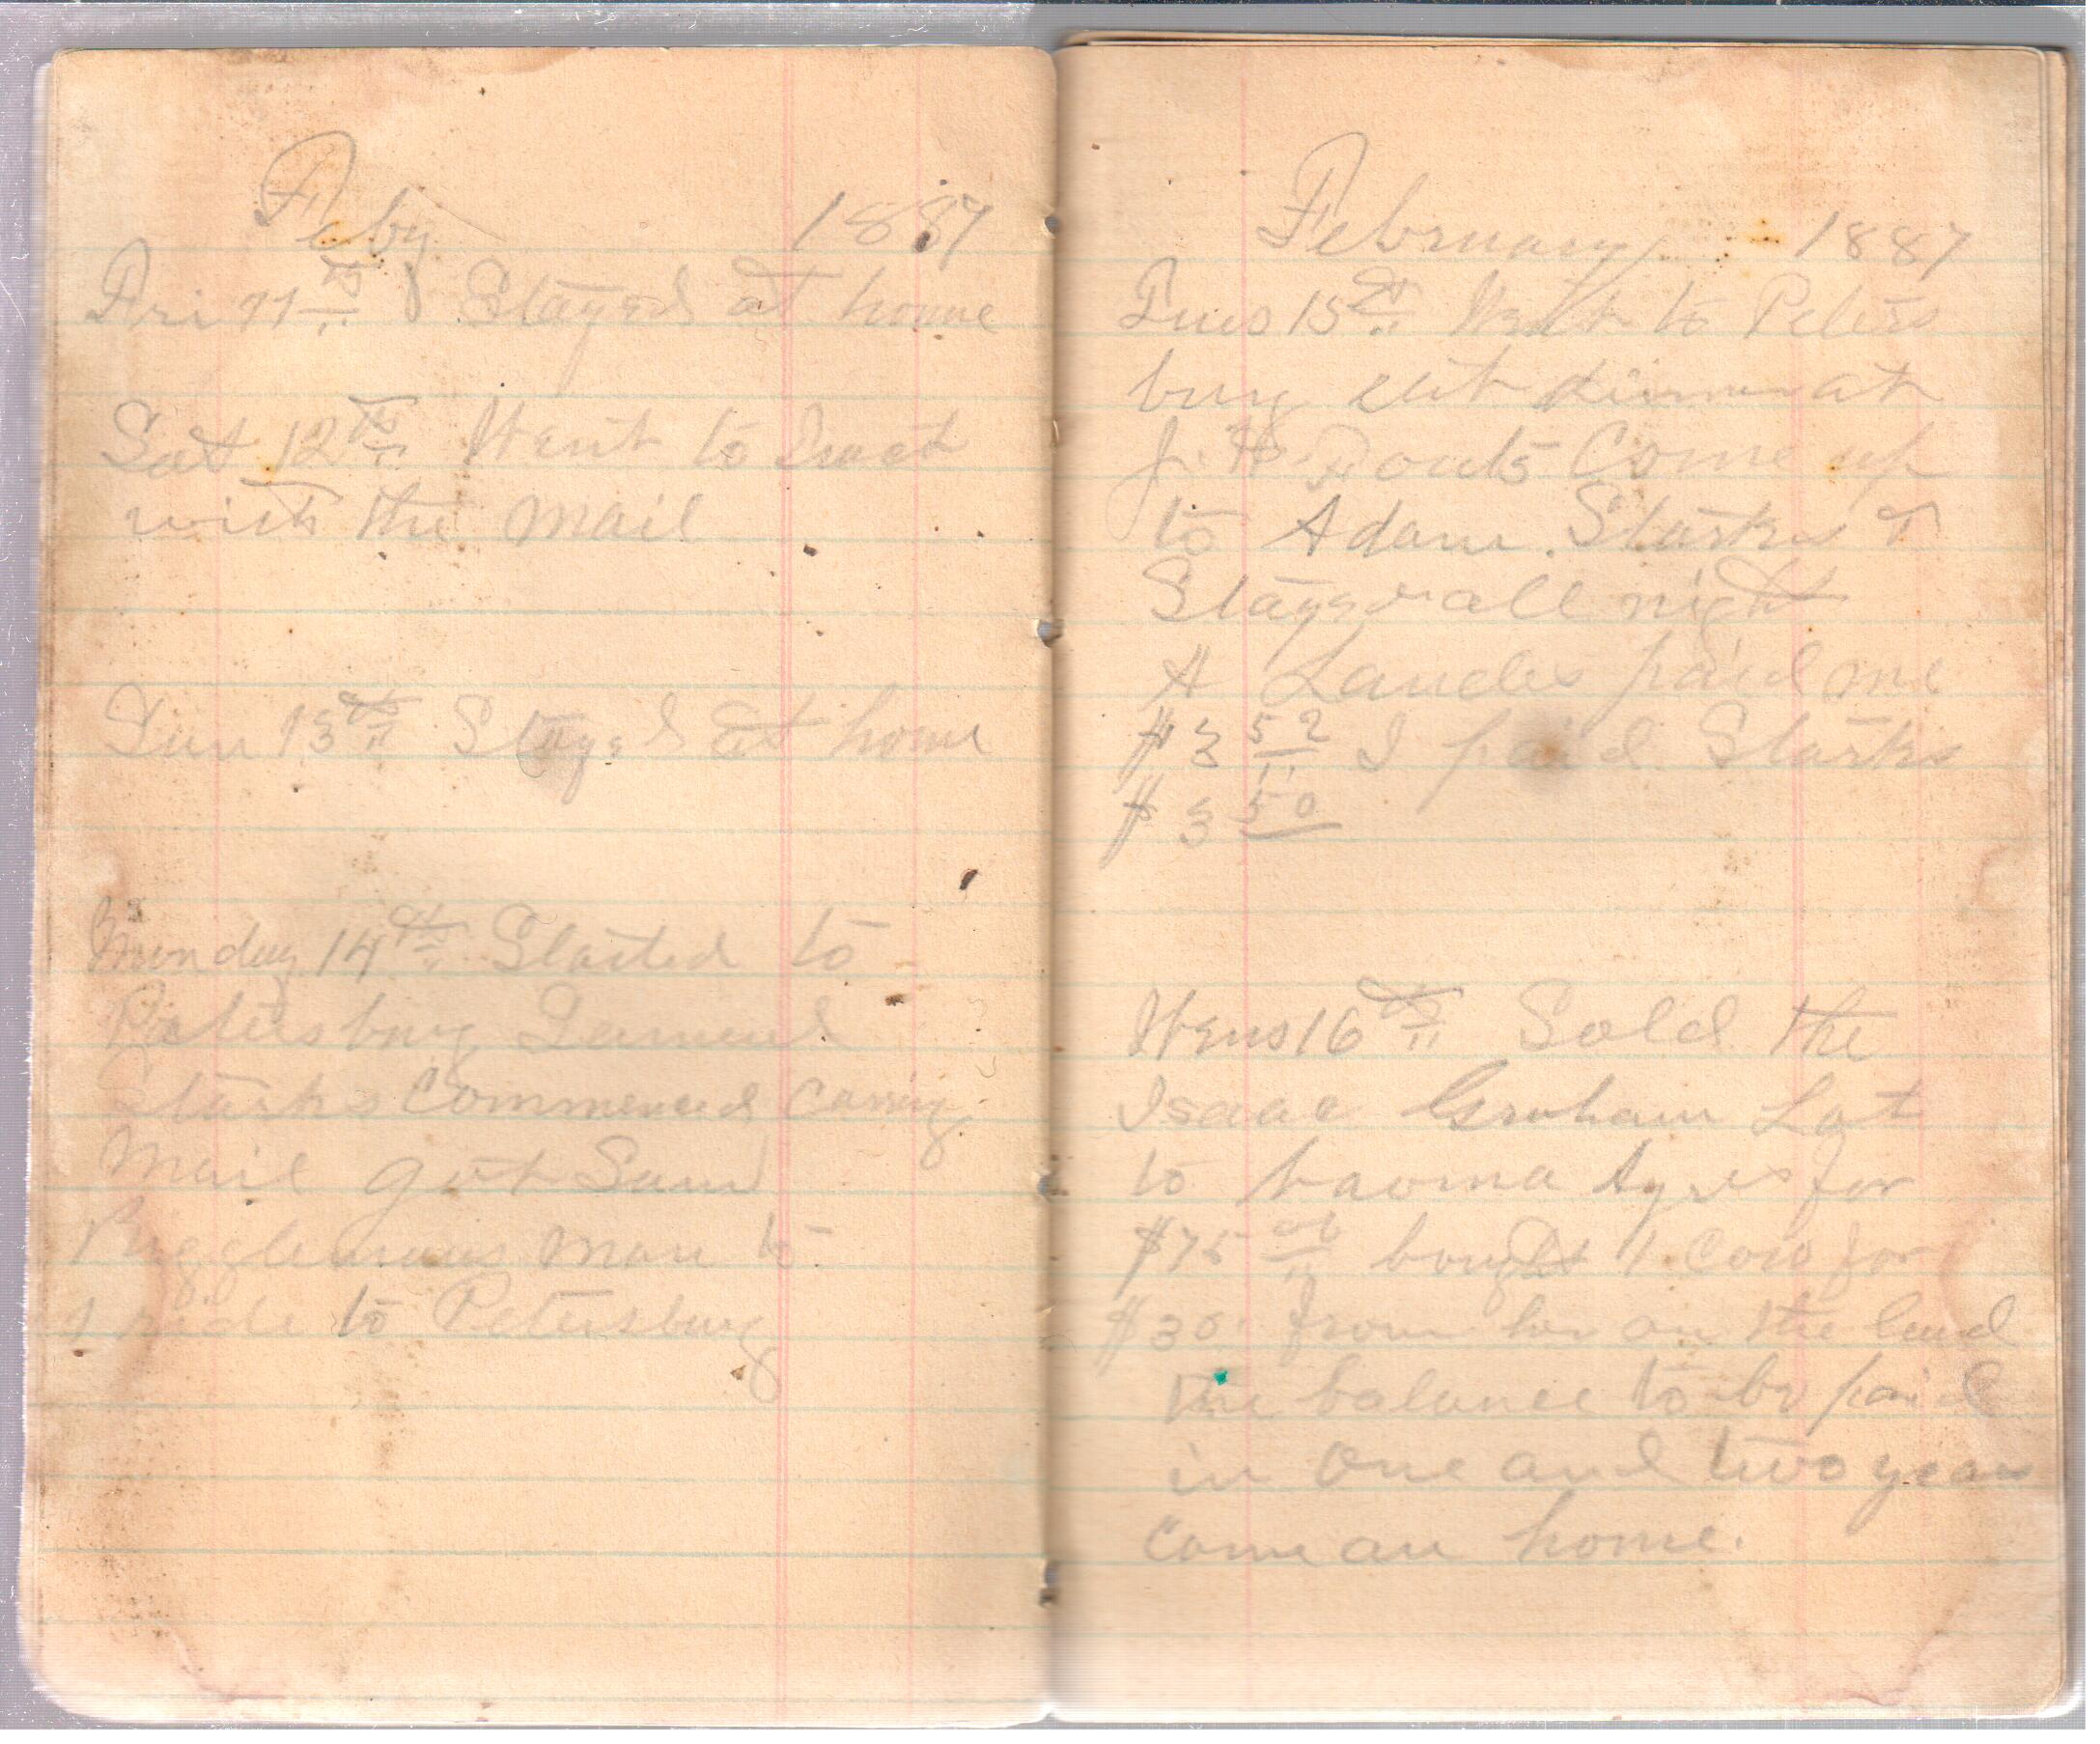 Feby 1887
Fri 11th Stayed at home
Sat 12th Went to
with the Mail
Sun 13th Stayed at home
Munday 14th Started to
Petersburg
Starks Commenced Carring
Mail got Sam
man to
ride to Petersburg
February 1887
Tues 15th Went to Peters
burg eat dinner at
J. Come up
to Adam Starks &
Stayed all night
A Landes paid me
$3 52 I paid Starks
$3 50
Wens 16th Sold the
Isaac Graham Lot
to Ayres for
$75 bought 1 Cow for
$30 from her on the land
the balance to be paid
in one and two years
Come on home.